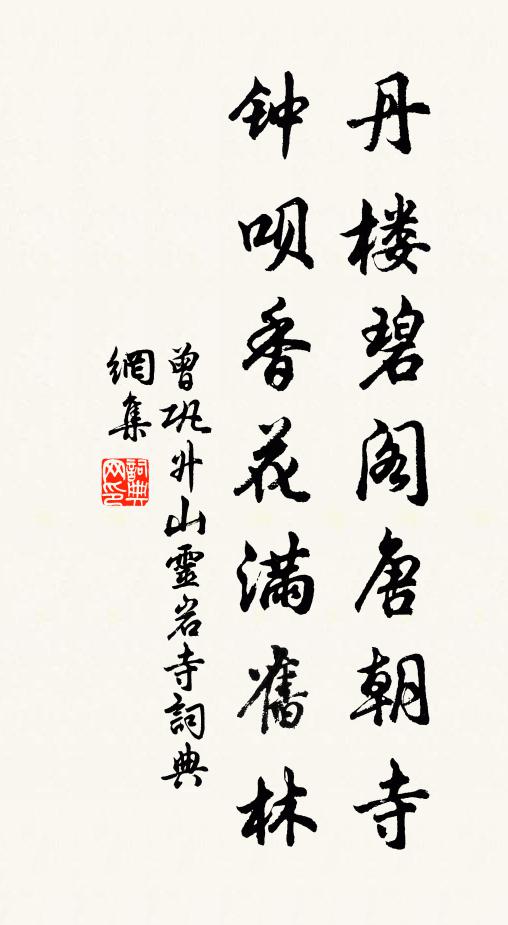 丹楼碧阁唐朝寺
钟呗香花满舊林
曾巩升山靈岩寺詞典
網集
詞典
网印